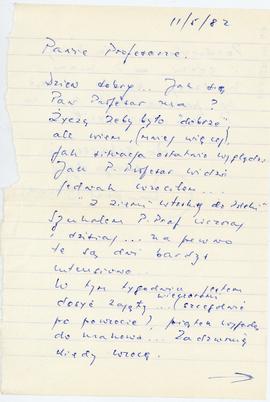 11/5/82
Panie Profesorze.
Dzień dobry... Jak się
Pan Profesor ma?
Życzę żeby było "dobrze"
ale wiem, (mniej więcej)
jak sytuacja ostatnio wygląda.
Jak P. Profesor widzi
jednak wróciłem...
"z ziemi włoskiej do Polski"
Szukałem P. Prof wczoraj
i dzisiaj... na pewno
te są dni bardzo
intensywne.
W tym tygodniu jestem
dosyć zajęty wieczorami... (szczególnie
po powrocie),
do Krakowa... Zadzwonię
kiedy wrócę.